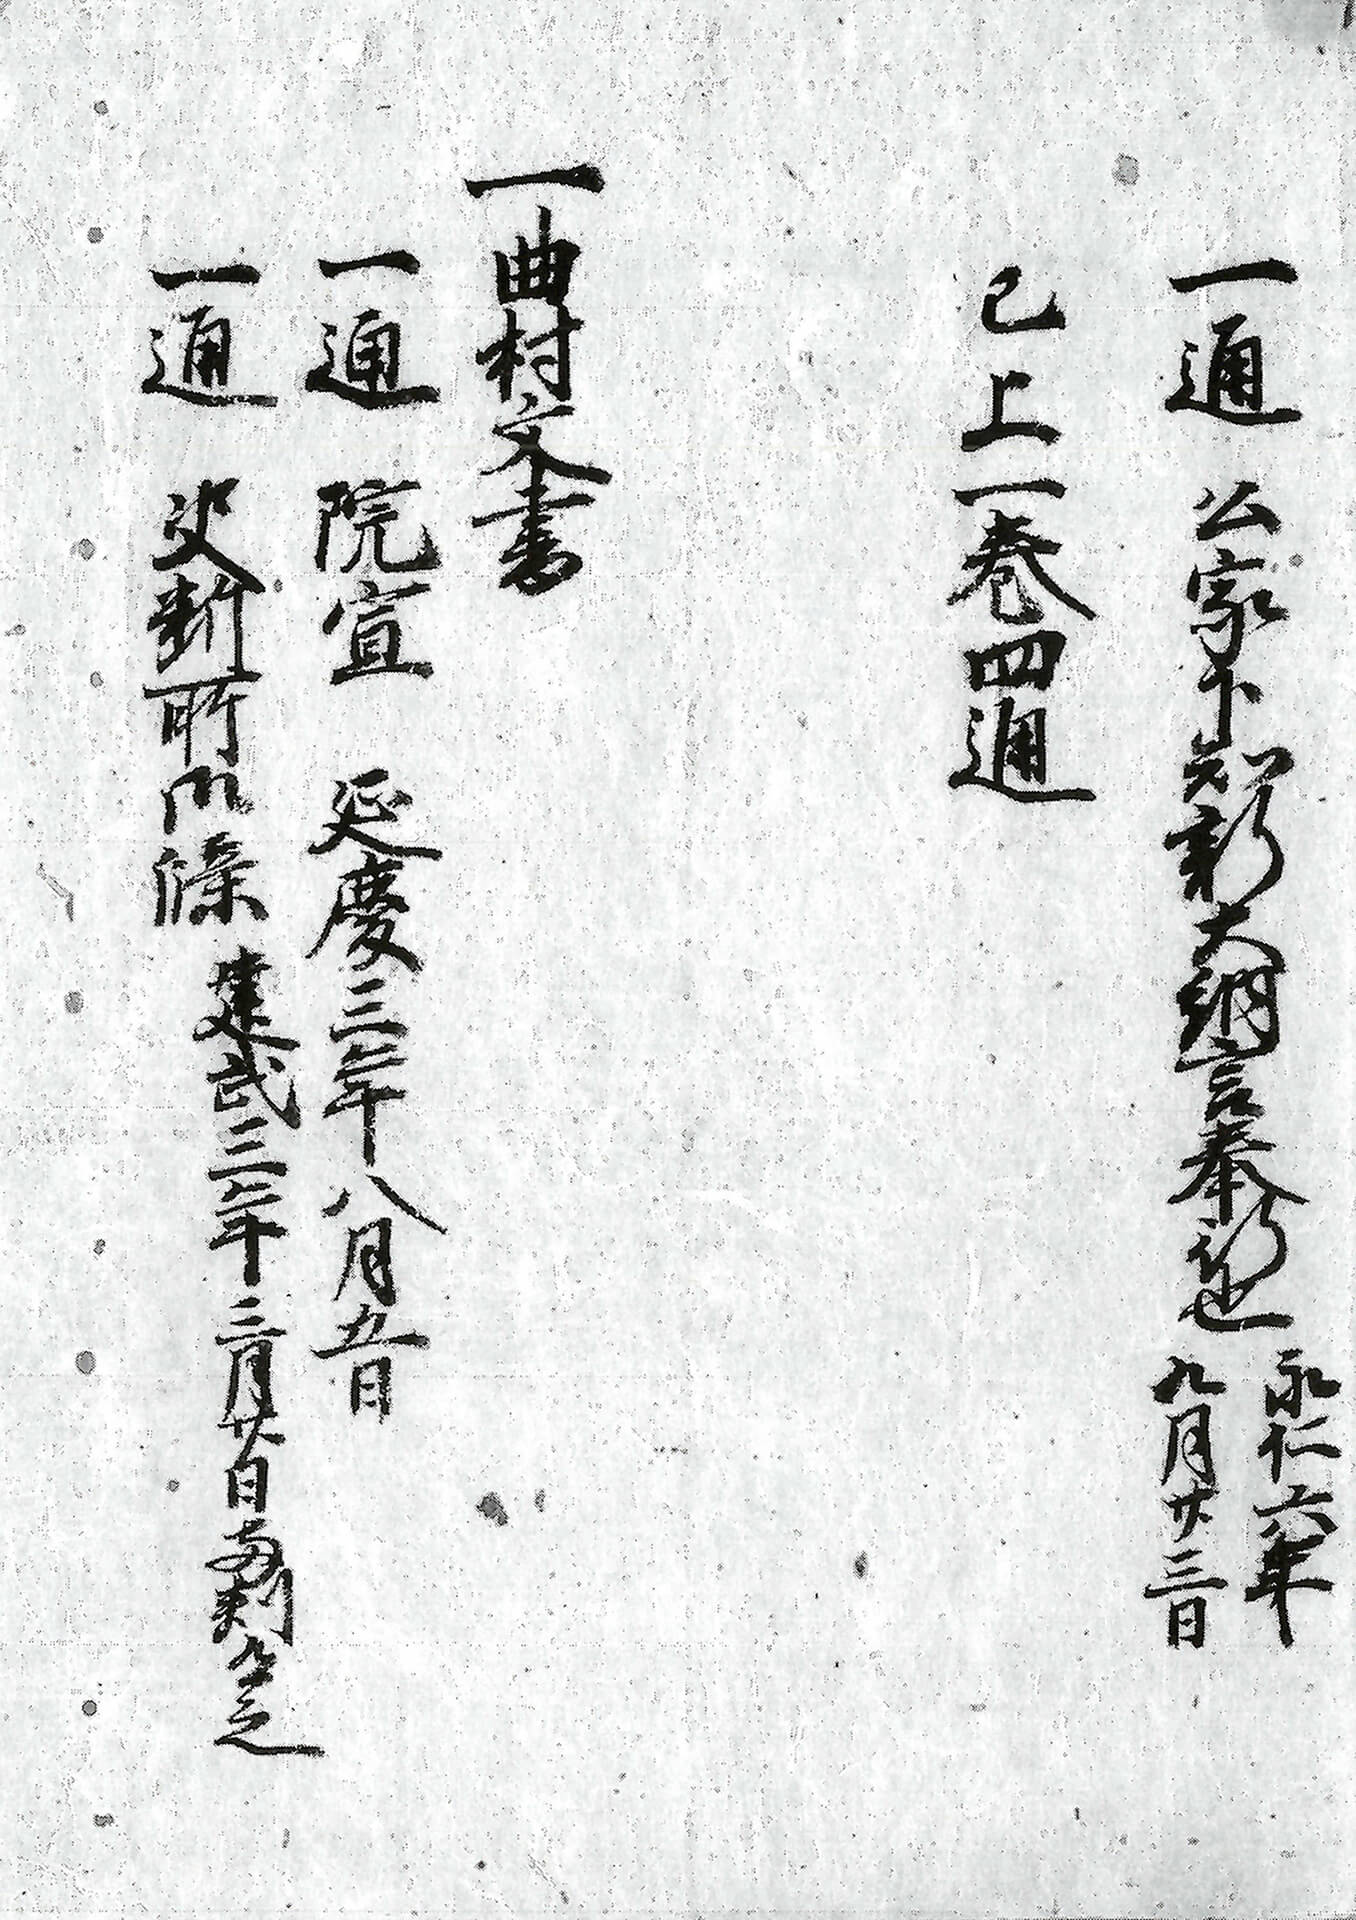 一通 公家下知 新大納言奉行也 永仁六年
九月廿三日
已上一巻四通
一曲村文書
一通 院宣 延慶三年八月五日
一通 決断所御牒 建武三年三月廿日 在之